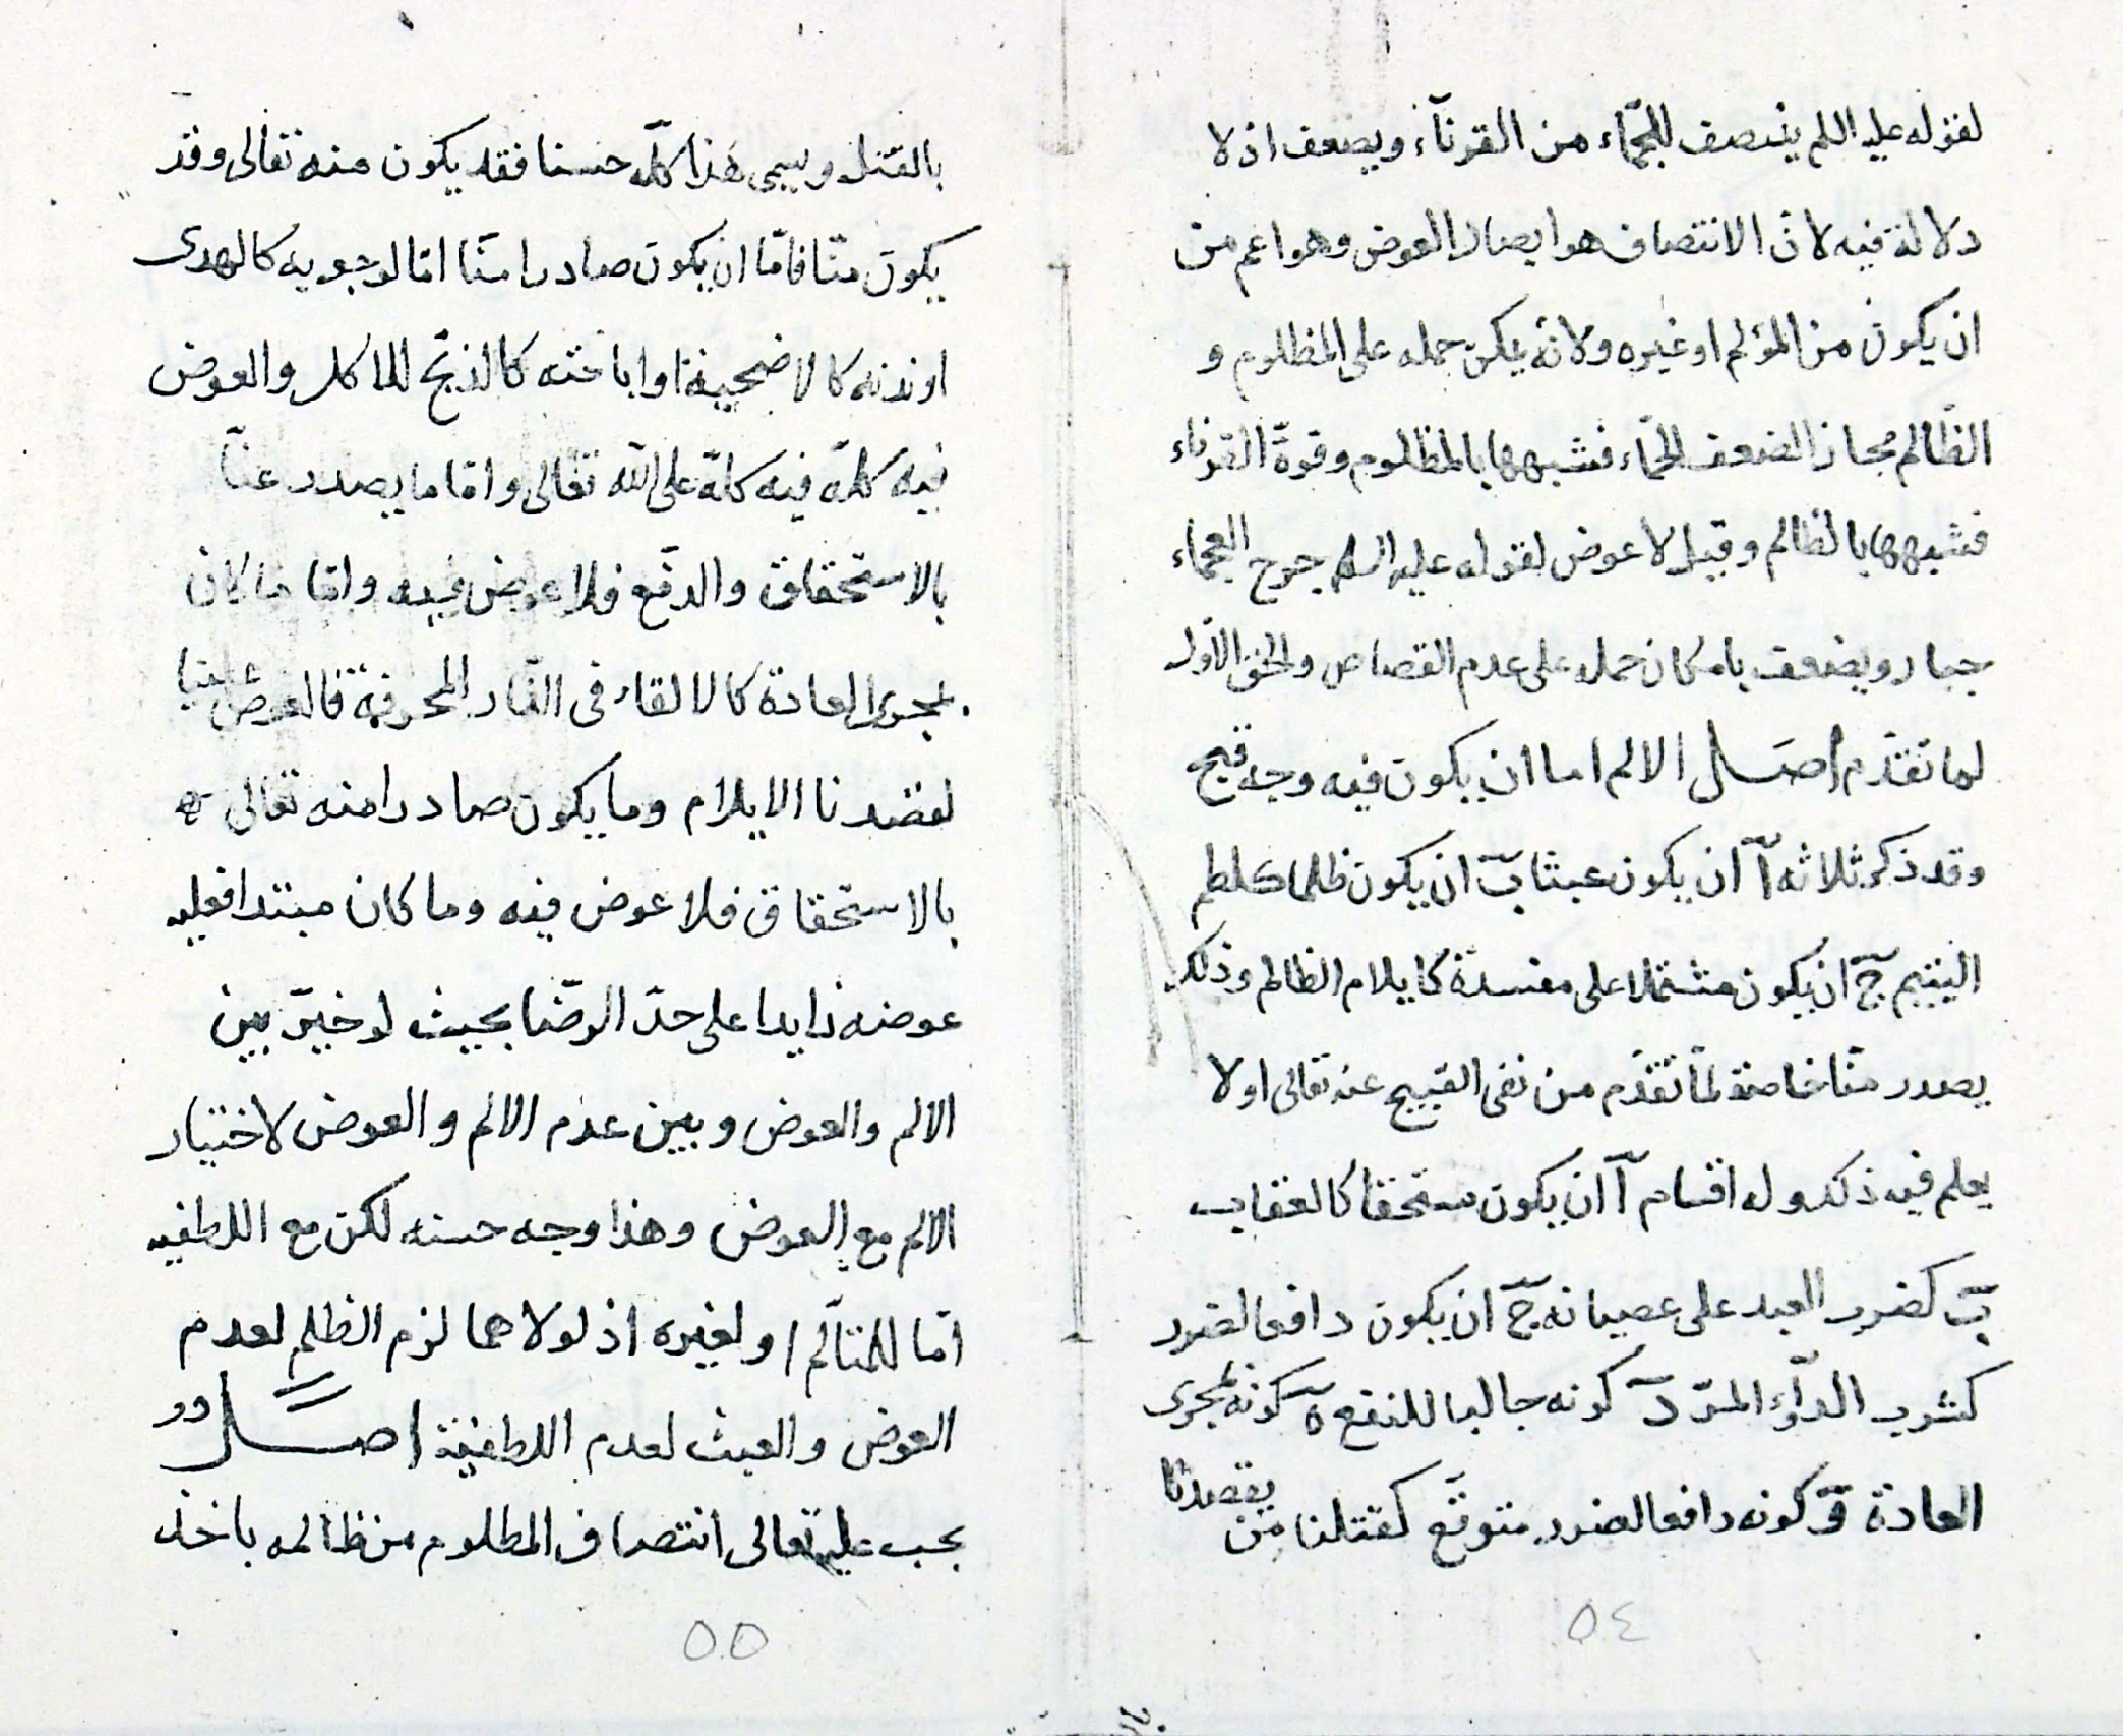 لقوله عليه اللم ينتصف للجمّاء من القرنآء ويضعف اذ لا
دلالة فيه لانّ الانتصاف هو ايصال العوض وهو اعم من
ان يكون من المؤلم او غيره ولانّه يمكن حمله على المظلوم و
الظالم مجازا لضعف الجمّاء فشبهها بالمظلوم وقوة القرناء
فشبهها بالظالم وقيل لا عوض لقوله عليه السلم جرح العجماء
جبار ويضعف بامكان حمله على عدم القصاص والحق الاول
لما تقدّم اصل الالم اما ان يكون فيه وجه قبح
وقد ذكر ثلاثه آ ان يكون عبثا ب ان يكون ظلما كلطم
اليتيم ج ان يكون مشتملا على مفسدة كايلام الظالم وذلك
يصدر منّا خاصة لما تقدّم من نفى القبيح عنه تعالى او لا
يعلم فيه ذلك وله اقسام آ ان يكون مستحقا كالعقاب
ب كضرب العبد على عصيانه ج ان يكون دافعا لضرر
كشرب الدوآء المرّ د كونه جالبا للنفع ه كونه بمجرى
العادة و كونه دافعا لضرر متوقّع كقتلنا من يقصدنا
٥٤
بالقتل ويسمى هذا كلّه حسنا فقد يكون منه تعالى وقد
يكون منّا فامّا ان يكون صادرا منّا امّا لوجوبه كالهدى
او ندبه كالاضحية او اباحته كالذبح للماكل والعوض
فيه كلّه فيه كلّه على الله تعالى وامّا ما يصدر عنّا
بالاستحقاق والدفع فلا عوض فيه وامّا ما كان
بمجرى العادة كالالقاء فى النّار المحرقة فالعوض علينا
لقصدنا الايلام وما يكون صادرا منه تعالى
بالاستحقاق فلا عوض فيه وما كان مبتدا فعليه
عوضه زايدا على حدّ الرضّا بحيث لو خيّر بين
الالم والعوض وبين عدم الالم والعوض لاختيار
الالم مع العوض وهذا وجه حسنه لكن مع اللطفيه
امّا للمتألّم او لغيره اذ لولاهما لزم الظلم لعدم
العوض والعبث لعدم اللطفية اصل
يجب عليه تعالى انتصاف المظلوم من ظالمه باخذ
٥٥